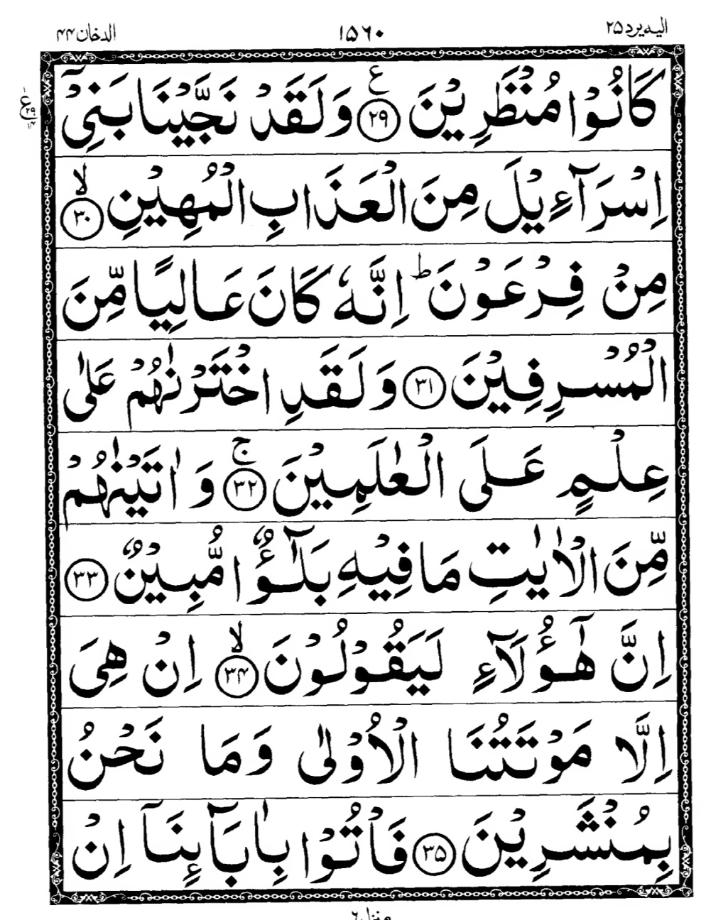 الیه یرد ۲۵ ۱۵۶۰ الدخان ۴۴
كَانُوْا مُنْظَرِيْنَ ﴿۲۹﴾ ع وَلَقَدْ نَجَّيْنَا بَنِيْٓ
اِسْرَآءِيْلَ مِنَ الْعَذَابِ الْمُهِيْنِ ﴿۳۰﴾ ۙ
مِنْ فِرْعَوْنَ ؕ اِنَّهٗ كَانَ عَالِيًا مِّنَ
الْمُسْرِفِيْنَ ﴿۳۱﴾ وَلَقَدِ اخْتَرْنٰهُمْ عَلٰى
عِلْمٍ عَلَى الْعٰلَمِيْنَ ﴿۳۲﴾ ۚ وَاٰتَيْنٰهُمْ
مِّنَ الْاٰيٰتِ مَا فِيْهِ بَلٰٓـؤٌا مُّبِيْنٌ ﴿۳۳﴾
اِنَّ هٰٓؤُلَآءِ لَيَقُوْلُوْنَ ﴿۳۴﴾ ۙ اِنْ هِىَ
اِلَّا مَوْتَتُنَا الْاُوْلٰى وَمَا نَحْنُ
بِمُنْشَرِيْنَ ﴿۳۵﴾ فَاْتُوْا بِاٰبَآٮِٕنَاۤ اِنْ
منزل ۶